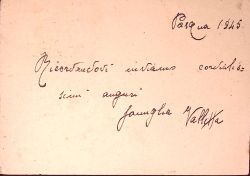 Pasqua 1945
Ricordandovi inviamo cordialis
simi auguri
famiglia Valletta